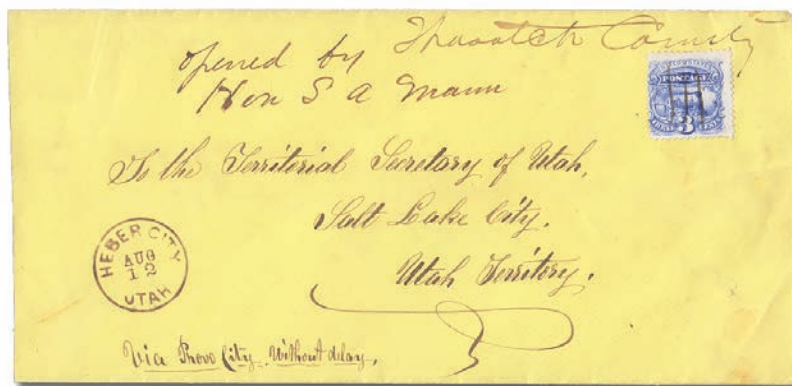 opened by Wasatch County
Hon S A Mann
POSTAGE
3
To the Territorial Secretary of Utah,
Salt Lake City.
Utah Territory.
HEBER CITY
AUG
12
UTAH
Via Provo City. Without delay.